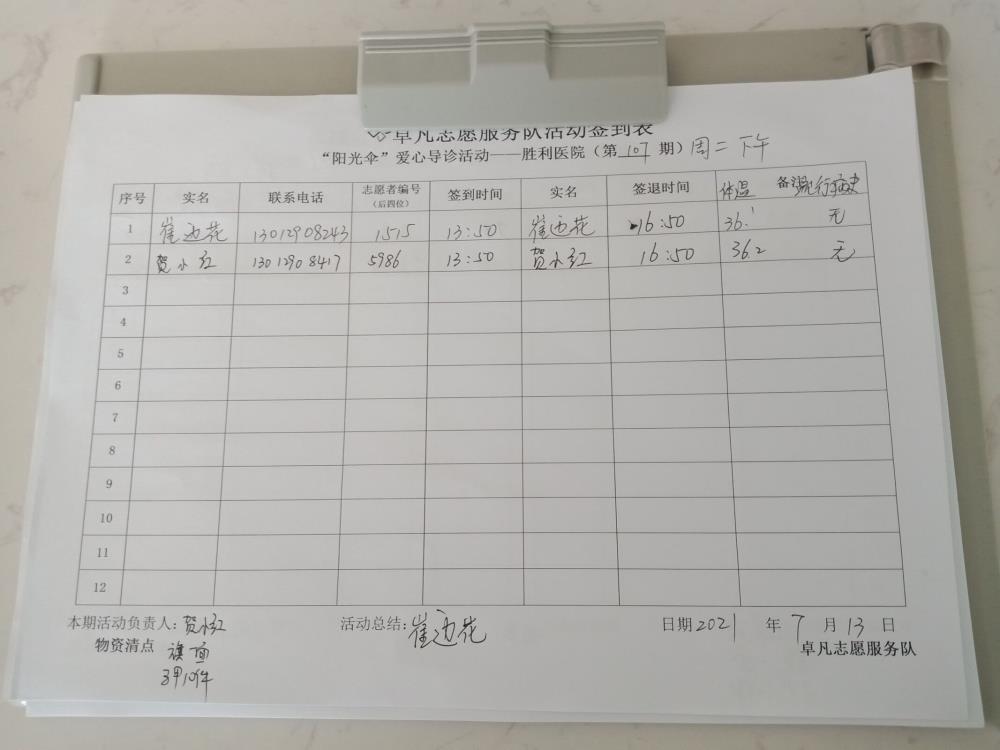 卓凡志愿服务队活动签到表
“阳光伞”爱心导诊活动——胜利医院（第 107 期）周二下午
序号 实名 联系电话 志愿者编号（后四位） 签到时间 实名 签退时间 体温 备注 流行病史
1 崔迎花 13012908243 1515 13:50 崔迎花 16:50 36.1 无
2 贺小红 13012908417 5986 13:50 贺小红 16:50 36.2 无
3
4
5
6
7
8
9
10
11
12
本期活动负责人：贺小红 活动总结：崔迎花 日期 2021 年 7 月 13 日
物资清点 旗 卓凡志愿服务队
10件